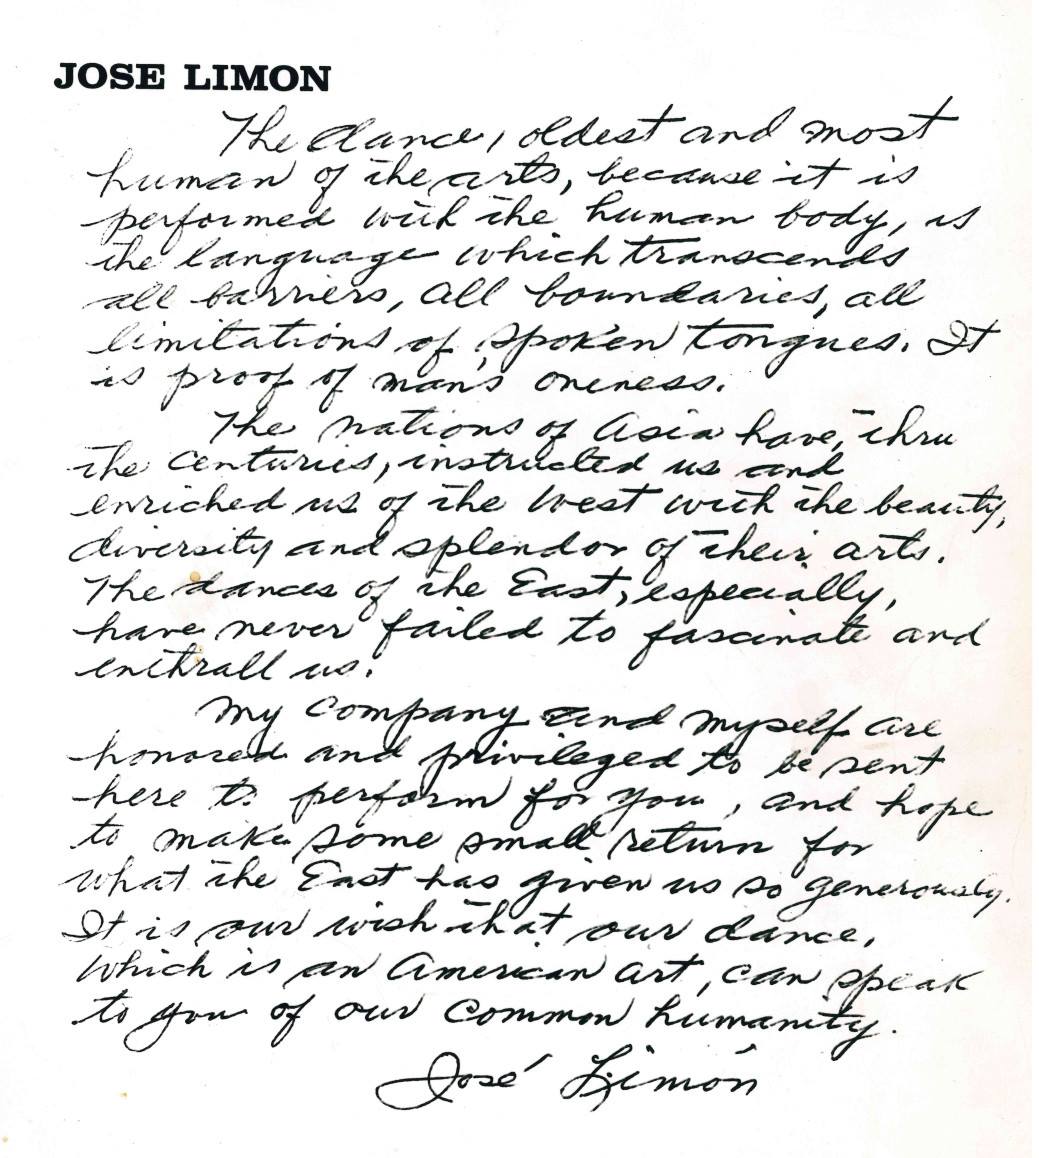 JOSE LIMON
The dance, oldest and most
human of the arts, because it is
performed with the human body, is
the language which transcends
all barriers, all boundaries, all
limitations of spoken tongues. It
is proof of man's oneness.
The nations of Asia have, thru
the centuries, instructed us and
enriched us of the West with the beauty,
diversity and splendor of their arts.
The dances of the East, especially,
have never failed to fascinate and
enthrall us.
My company and myself are
honored and privileged to be sent
here to perform for you, and hope
to make some small return for
what the East has given us so generously.
It is our wish that our dance,
which is an American art, can speak
to you of our common humanity.
José Limón